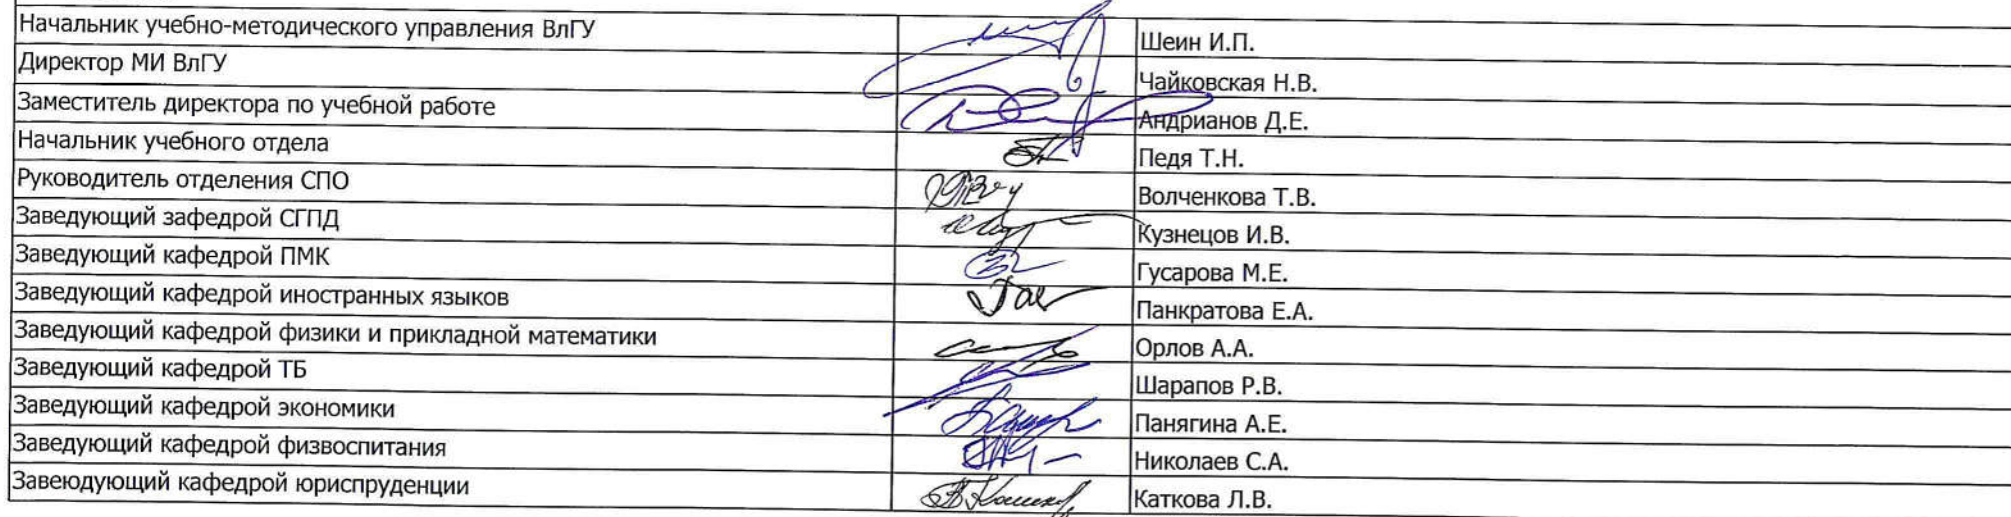 Начальник учебно-методического управления ВлГУ Шеин И.П.
Директор МИ ВлГУ Чайковская Н.В.
Заместитель директора по учебной работе Андрианов Д.Е.
Начальник учебного отдела Педя Т.Н.
Руководитель отделения СПО Волченкова Т.В.
Заведующий зафедрой СГПД Кузнецов И.В.
Заведующий кафедрой ПМК Гусарова М.Е.
Заведующий кафедрой иностранных языков Панкратова Е.А.
Заведующий кафедрой физики и прикладной математики Орлов А.А.
Заведующий кафедрой ТБ Шарапов Р.В.
Заведующий кафедрой экономики Панягина А.Е.
Заведующий кафедрой физвоспитания Николаев С.А.
Завеюдующий кафедрой юриспруденции Каткова Л.В.